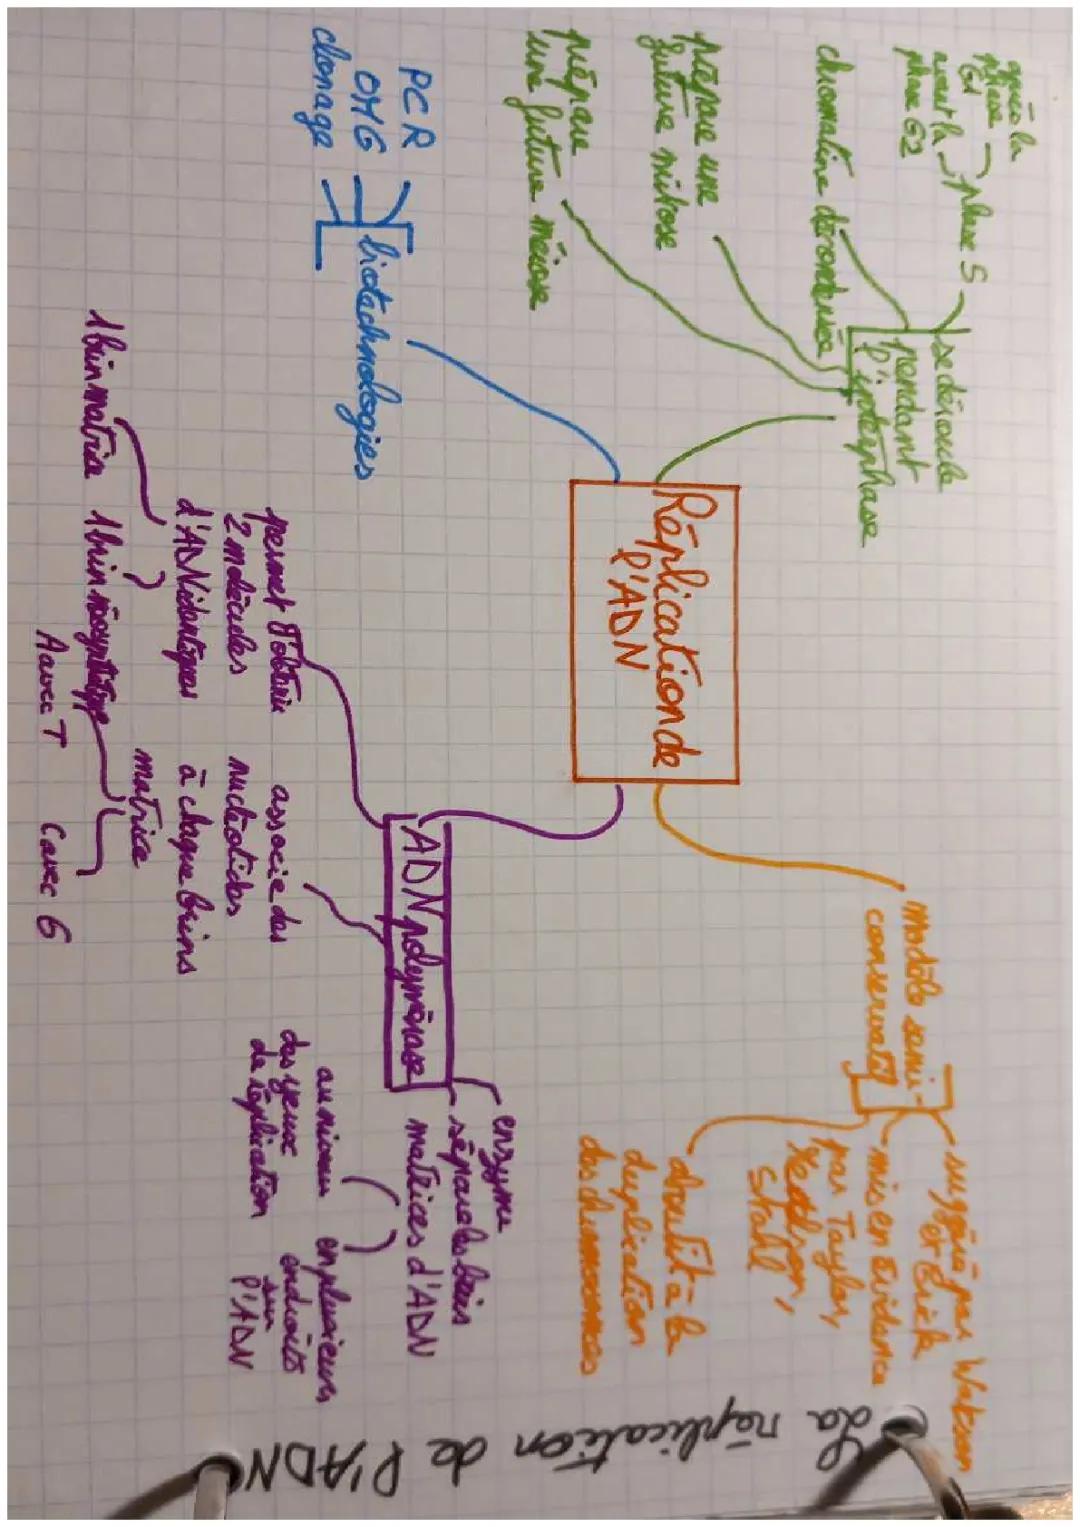 La réplication de l'ADN
Réplication de
l'ADN
se déroule
pendant
l'interphase
phase S
après la
phase
G1
avant la
phase G2
chromatine décondensée
prépare une
future mitose
prépare
une future méiose
biotechnologies
PCR
OMG
clonage
modèle semi-
conservatif
suggéré par Watson
et Crick
mis en évidence
par Taylor,
Meselson,
Stahl
aboutit à la
duplication
des chromosomes
ADN polymérase
enzyme
sépare les brins
matrices d'ADN
au niveau
des yeux
de réplication
en plusieurs
endroits
sur
l'ADN
associe des
nucléotides
à chaque brins
matrice
permet d'obtenir
2 molécules
d'ADN identiques
1 brin matrice
1 brin néosynthétisé
A avec T
C avec G